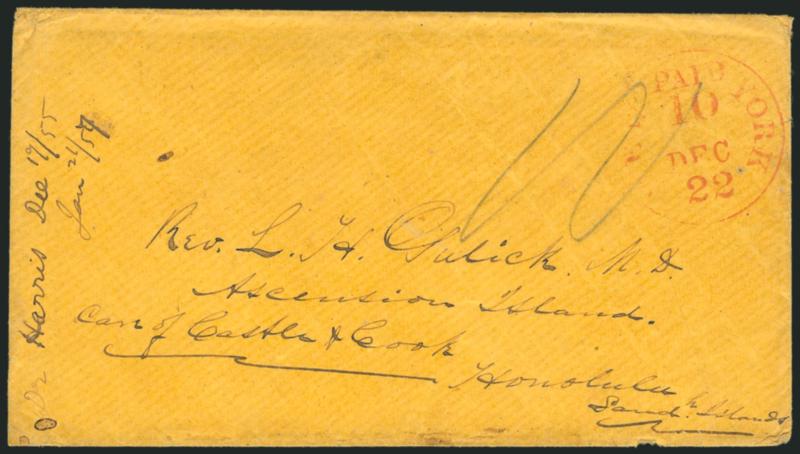 Dr Harris Dec 19/55
Jan 21/57
PAID
10
YORK
DEC
22
10
Rev. L. H. Gulick. M.D.
Ascension Island.
Care of Castle & Cook
Honolulu
Sandh. Islands